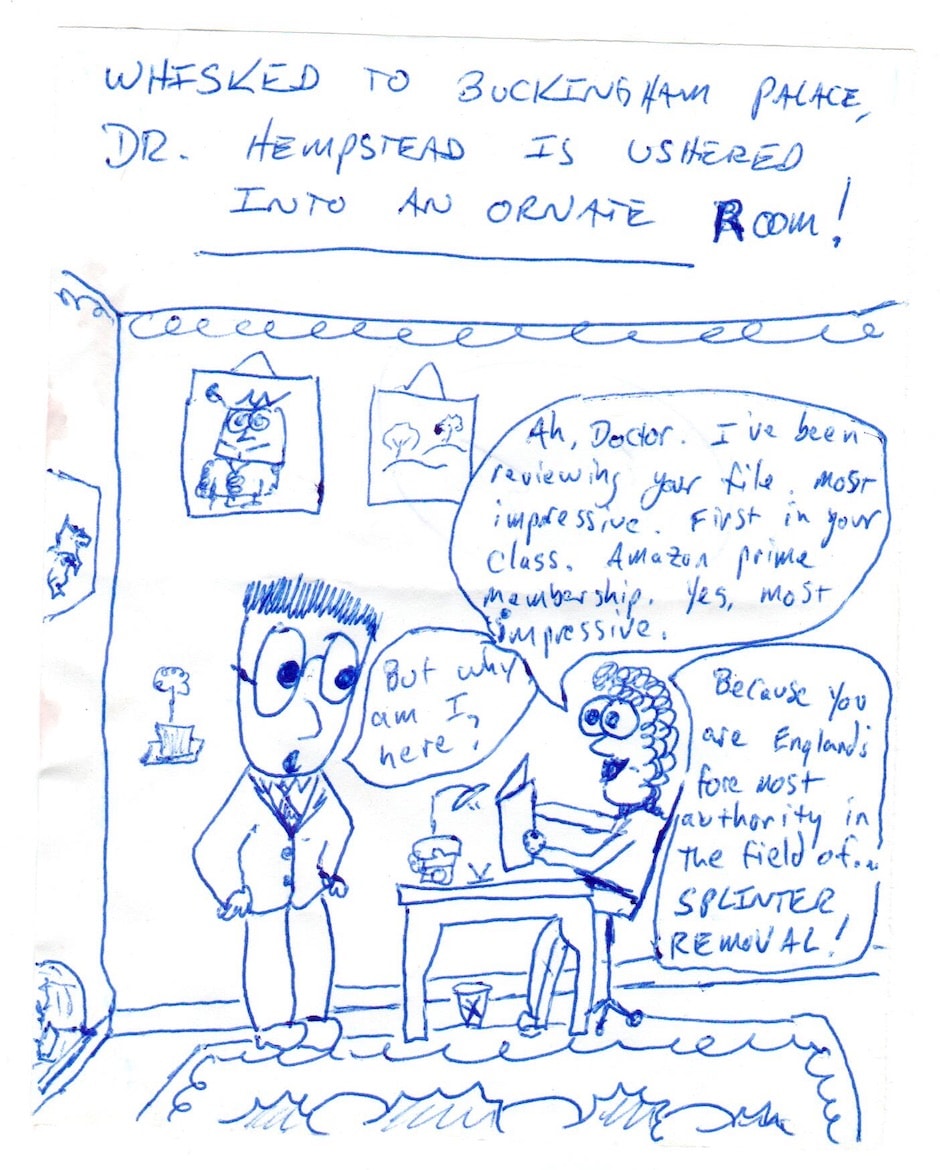 WHISKED TO BUCKINGHAM PALACE,
DR. HEMPSTEAD IS USHERED
INTO AN ORNATE ROOM!
Ah, Doctor. I've been
reviewing your file. most
impressive. First in your
class. Amazon prime
membership. Yes, most
impressive.
But why
am I,
here?
Because you
are England's
fore most
authority in
the field of...
SPLINTER
REMOVAL!